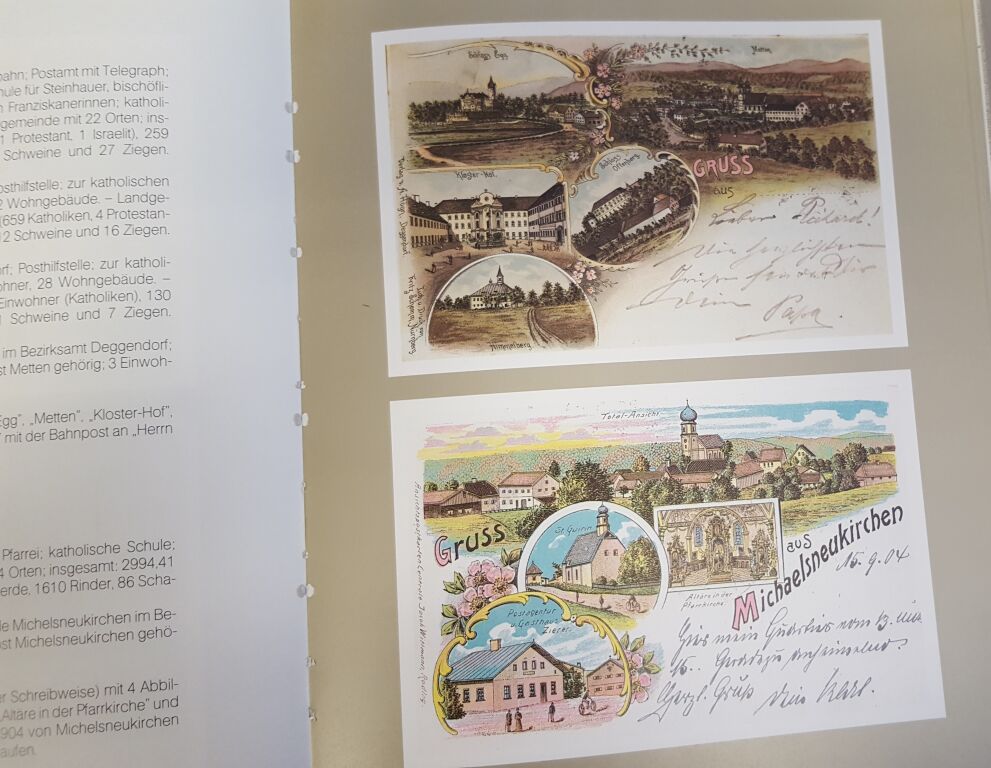 bahn; Postamt mit Telegraph;
hule für Steinhauer, bischöfli-
n Franziskanerinnen; katholi-
gemeinde mit 22 Orten; ins-
1 Protestant, 1 Israelit), 259
Schweine und 27 Ziegen.
osthilfstelle; zur katholischen
2 Wohngebäude. – Landge-
(659 Katholiken, 4 Protestan-
12 Schweine und 16 Ziegen.
orf; Posthilfstelle; zur katholi-
ohner, 28 Wohngebäude. –
Einwohner (Katholiken), 130
Schweine und 7 Ziegen.
im Bezirksamt Deggendorf;
st Metten gehörig; 3 Einwoh-
Egg", „Metten", „Kloster-Hof",
mit der Bahnpost an „Herrn
Pfarrei; katholische Schule;
4 Orten; insgesamt: 2994,41
erde, 1610 Rinder, 86 Scha-
de Michelsneukirchen im Be-
ost Michelsneukirchen gehö-
er Schreibweise) mit 4 Abbil-
„Altäre in der Pfarrkirche" und
904 von Michelsneukirchen
aufen.
Schloss Egg
Metten
Kloster-Hof.
Schloss Offenberg
GRUSS
aus
Himmelberg
Lieber
Die herzlichsten
Grüße sendet Dir
dein
Papa.
Total-Ansicht
GRUSS
St. Quirin
Altäre in der
Pfarrkirche
aus
Michaelsneukirchen
15.9.04
Postagentur
u. Gasthaus
Zierer
Hier mein Quartier vom 13.
15. Geradezu
Herzl. Gruß Dein Karl.